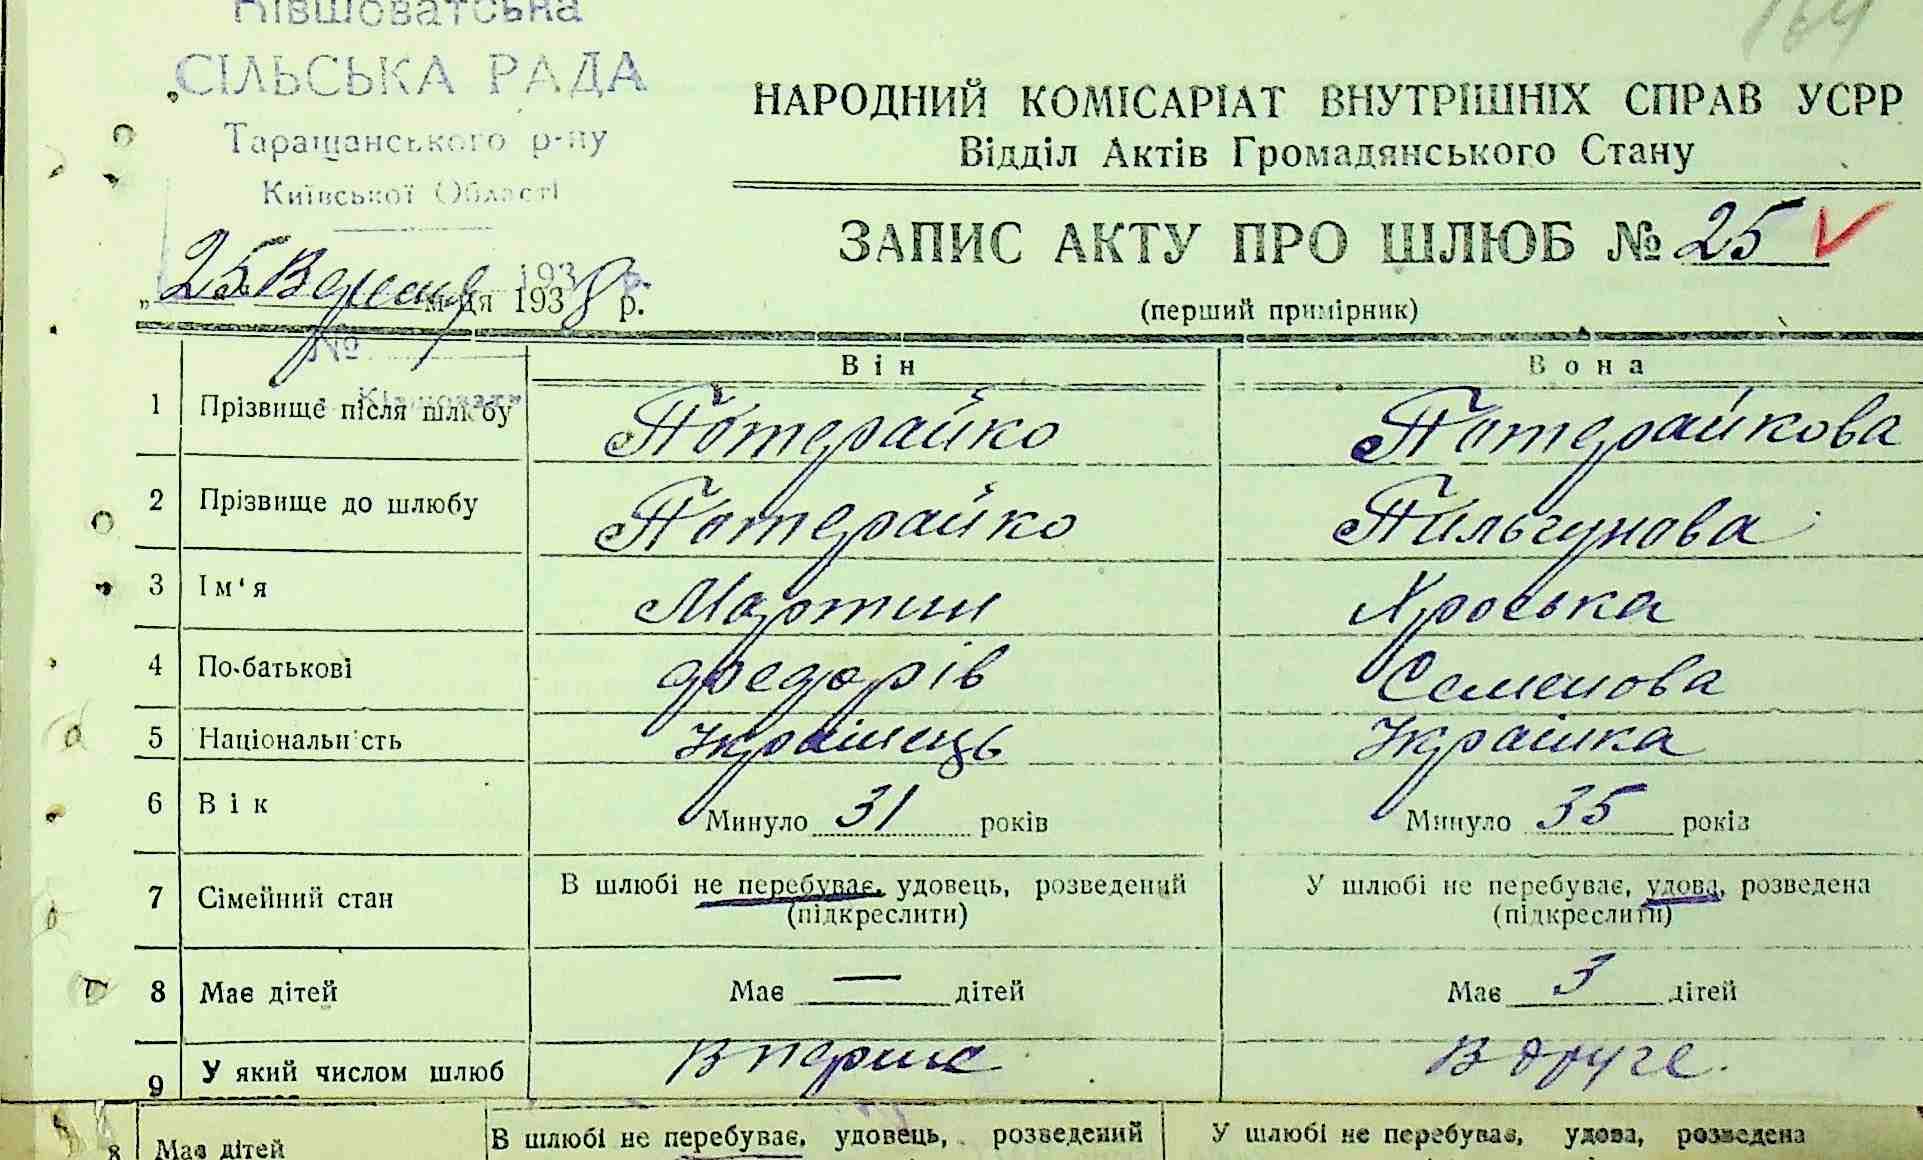 Ківшоватська
СІЛЬСЬКА РАДА
Таращанського р-ну
Київської Області
164
НАРОДНИЙ КОМІСАРІАТ ВНУТРІШНІХ СПРАВ УСРР
Відділ Актів Громадянського Стану
ЗАПИС АКТУ ПРО ШЛЮБ № 25
(перший примірник)
193 р.
„25 Вересня м-ця 1938 р.
№
Він Вона
1 Прізвище після шлюбу Потерайко Потерайкова
2 Прізвище до шлюбу Потерайко Пильгунова
3 Ім‘я Мартин Хроська
4 По-батькові Федорів Семенова
5 Національність Українець Українка
6 Вік Минуло 31 років Минуло 35 років
7 Сімейний стан В шлюбі не перебуває, удовець, розведений У шлюбі не перебуває, удова, розведена
(підкреслити) (підкреслити)
8 Має дітей Має — дітей Має 3 дітей
9 У який числом шлюб Вперше Вдруге.
8 Має дітей В шлюбі не перебуває, удовець, розведений У шлюбі не перебуває, удова, розведена